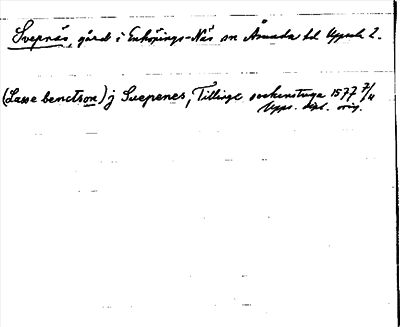 Svepnäs, gård i Enköpings-Näs sn Åsunda hd Uppsala l.
(Lasse benctson) j Suepenes, Tillinge sockenstuga 1577 7/4
Upps. dipl. orig.